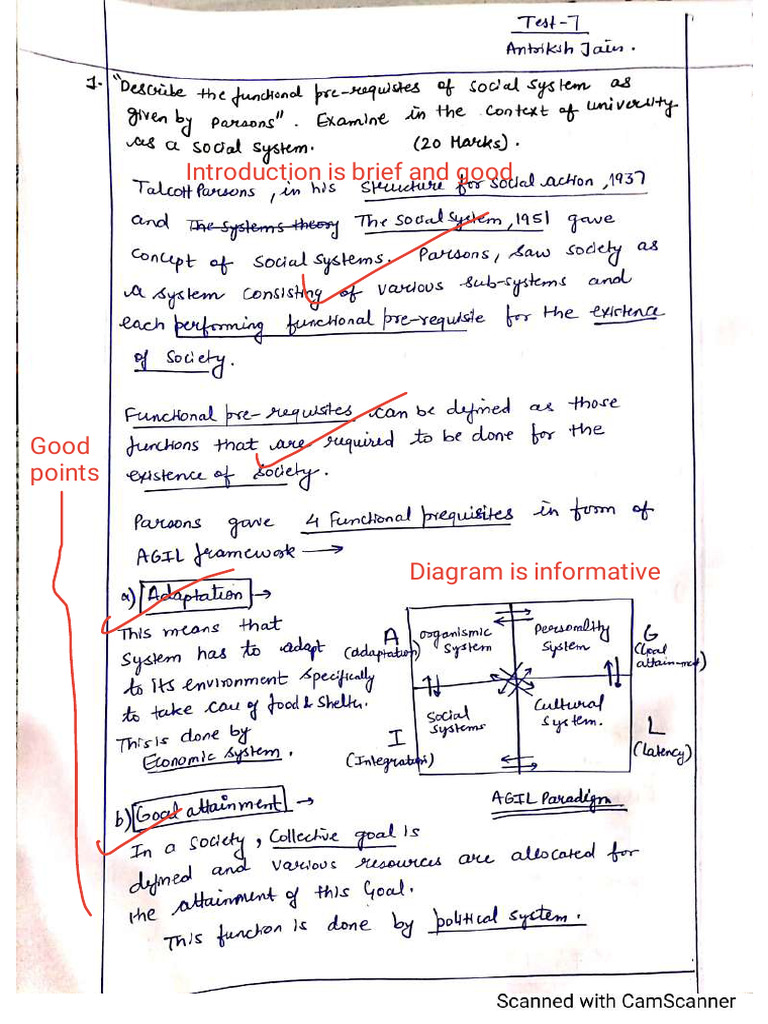 Test-7
Antriksh Jain.
1. "Describe the functional pre-requisites of social system as
given by Parsons". Examine in the context of university
as a social system. (20 Marks).
Introduction is brief and good
Talcott Parsons, in his Structure for social action, 1937
and The systems theory The social system, 1951 gave
concept of social systems. Parsons, saw society as
a system consisting of various sub-systems and
each performing functional pre-requisite for the existence
of society.
Functional pre-requisites can be defined as those
functions that are required to be done for the
existence of society.
Good
points
Parsons gave 4 Functional prequisites in form of
AGIL framework →
Diagram is informative
a) Adaptation →
This means that
system has to adapt
to its environment specifically
to take care of food & shelter.
This is done by
Economic system.
A
(adaptation)
organismic
system
Personality
system
G
(Goal
attain-ment)
Social
systems
Cultural
system.
I
(Integration)
L
(Latency)
AGIL Paradigm
b) Goal attainment →
In a society, collective goal is
defined and various resources are allocated for
the attainment of this Goal.
This function is done by political system.
Scanned with CamScanner